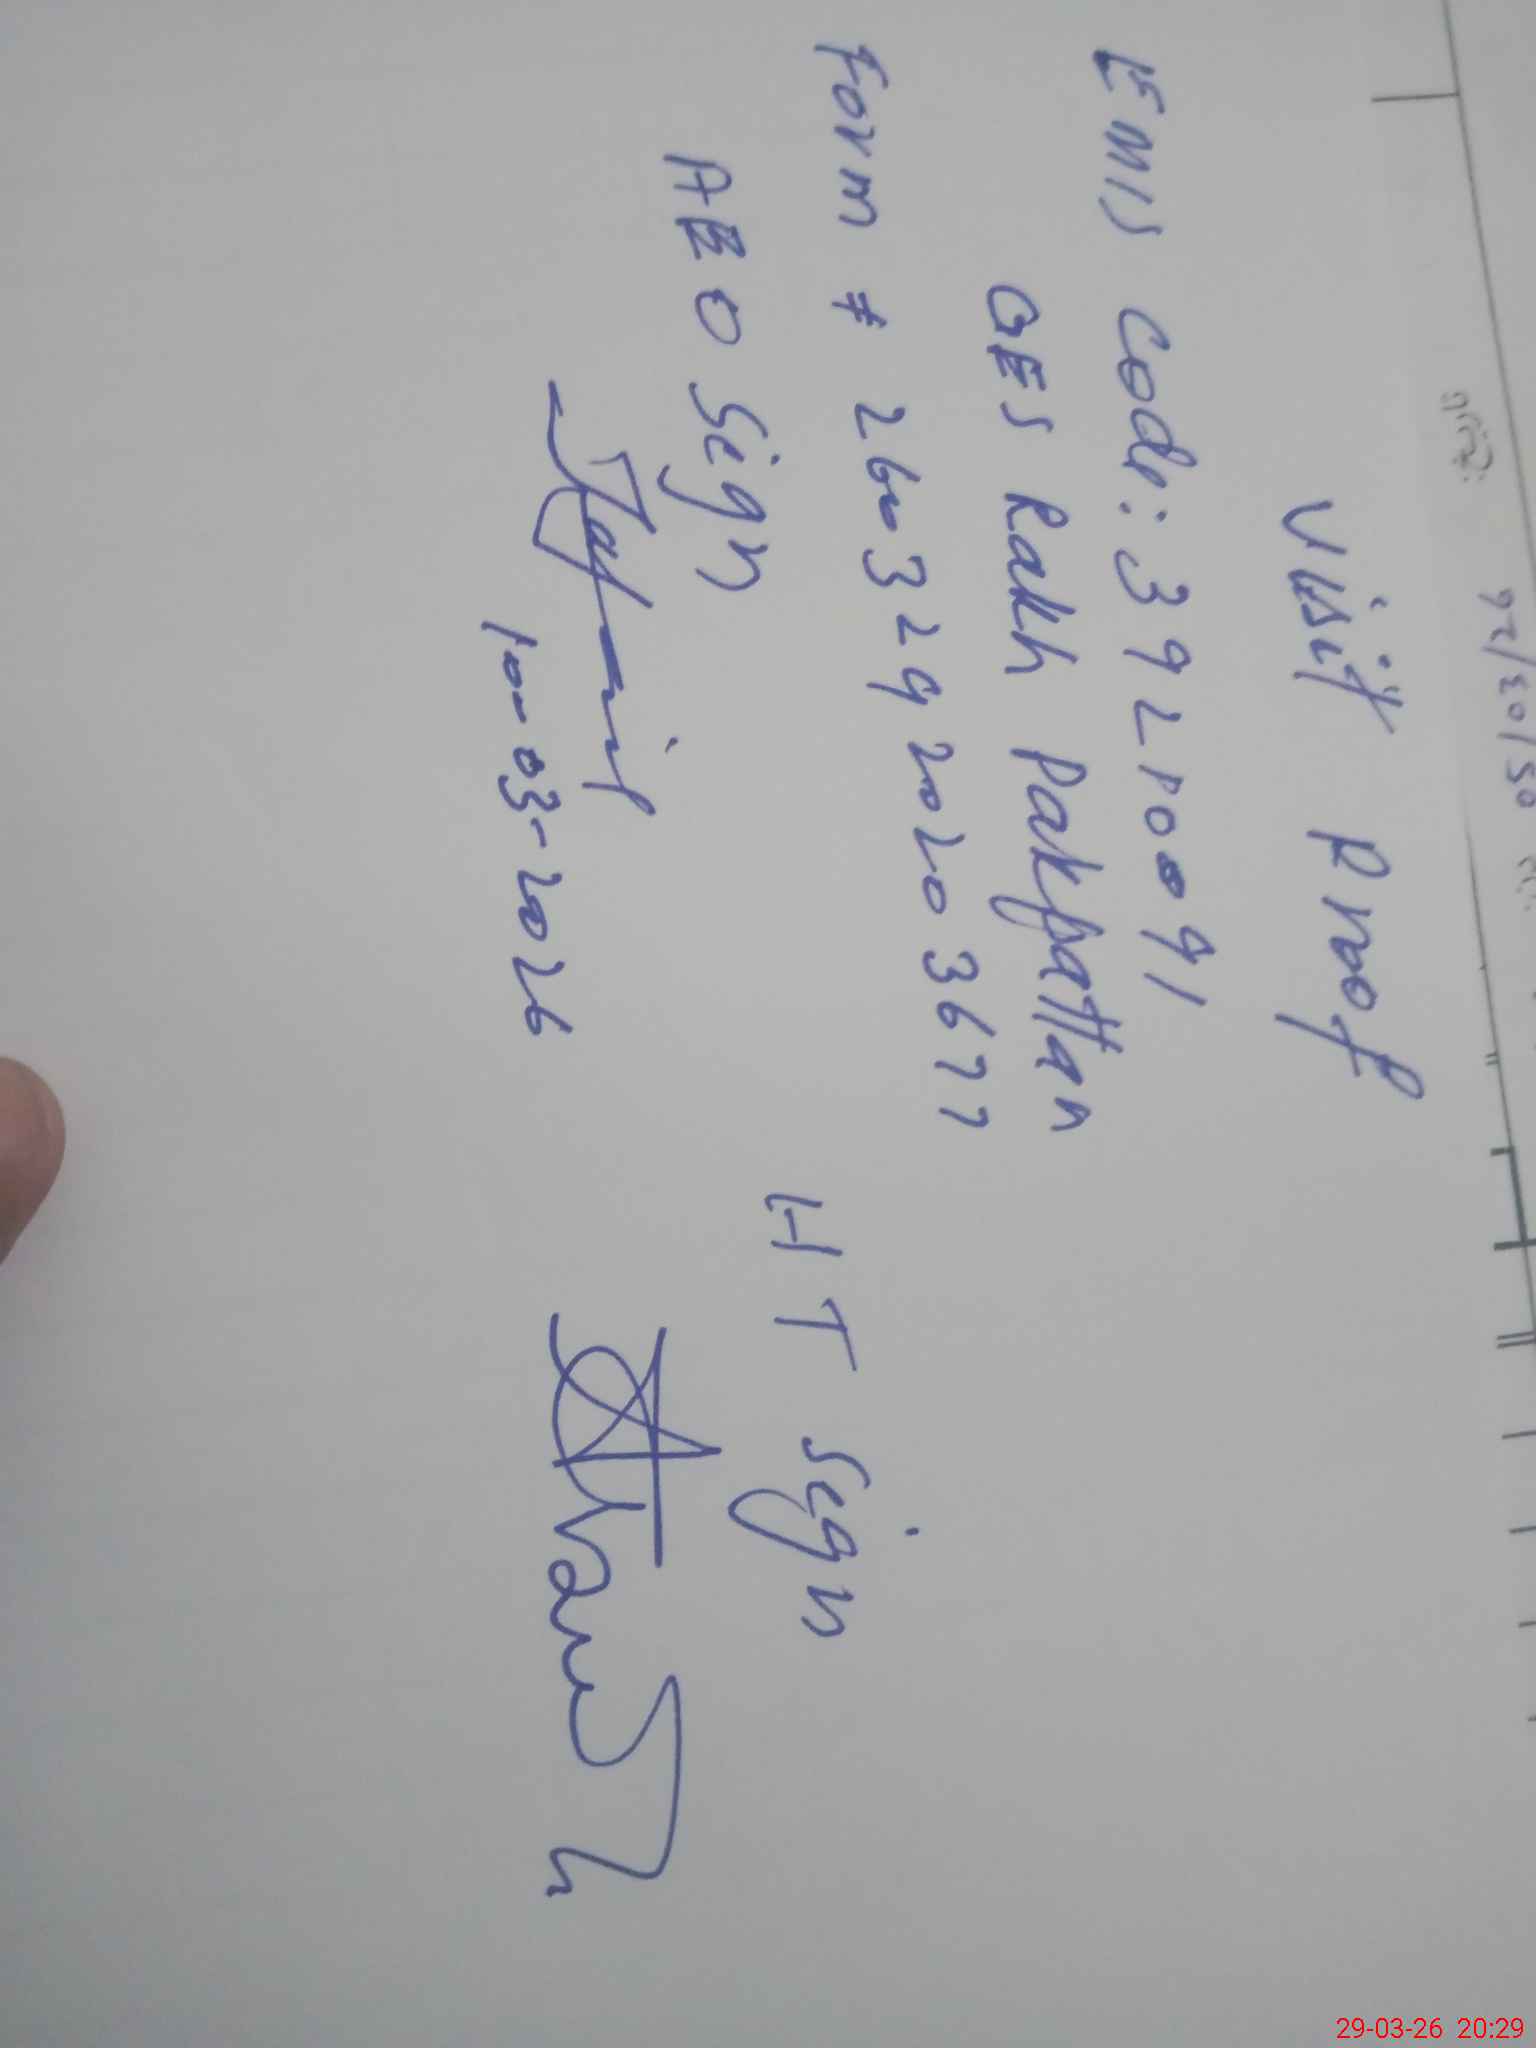 Visit Proof
EMIS Code: 39210091
GES Rakh Pakpattan
Form # 26032920203677
AEO Sign
HT Sign
10-03-2026
29-03-26 20:29